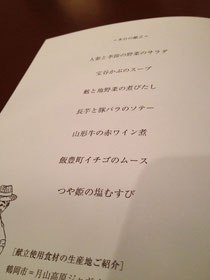 ～本日の献立～
人参と季節の野菜のサラダ
宝谷かぶのスープ
鱈と地野菜の煮びたし
長芋と豚バラのソテー
山形牛の赤ワイン煮
飯豊町イチゴのムース
つや姫の塩むすび
[献立使用食材の生産地ご紹介]
鶴岡市=月山高原